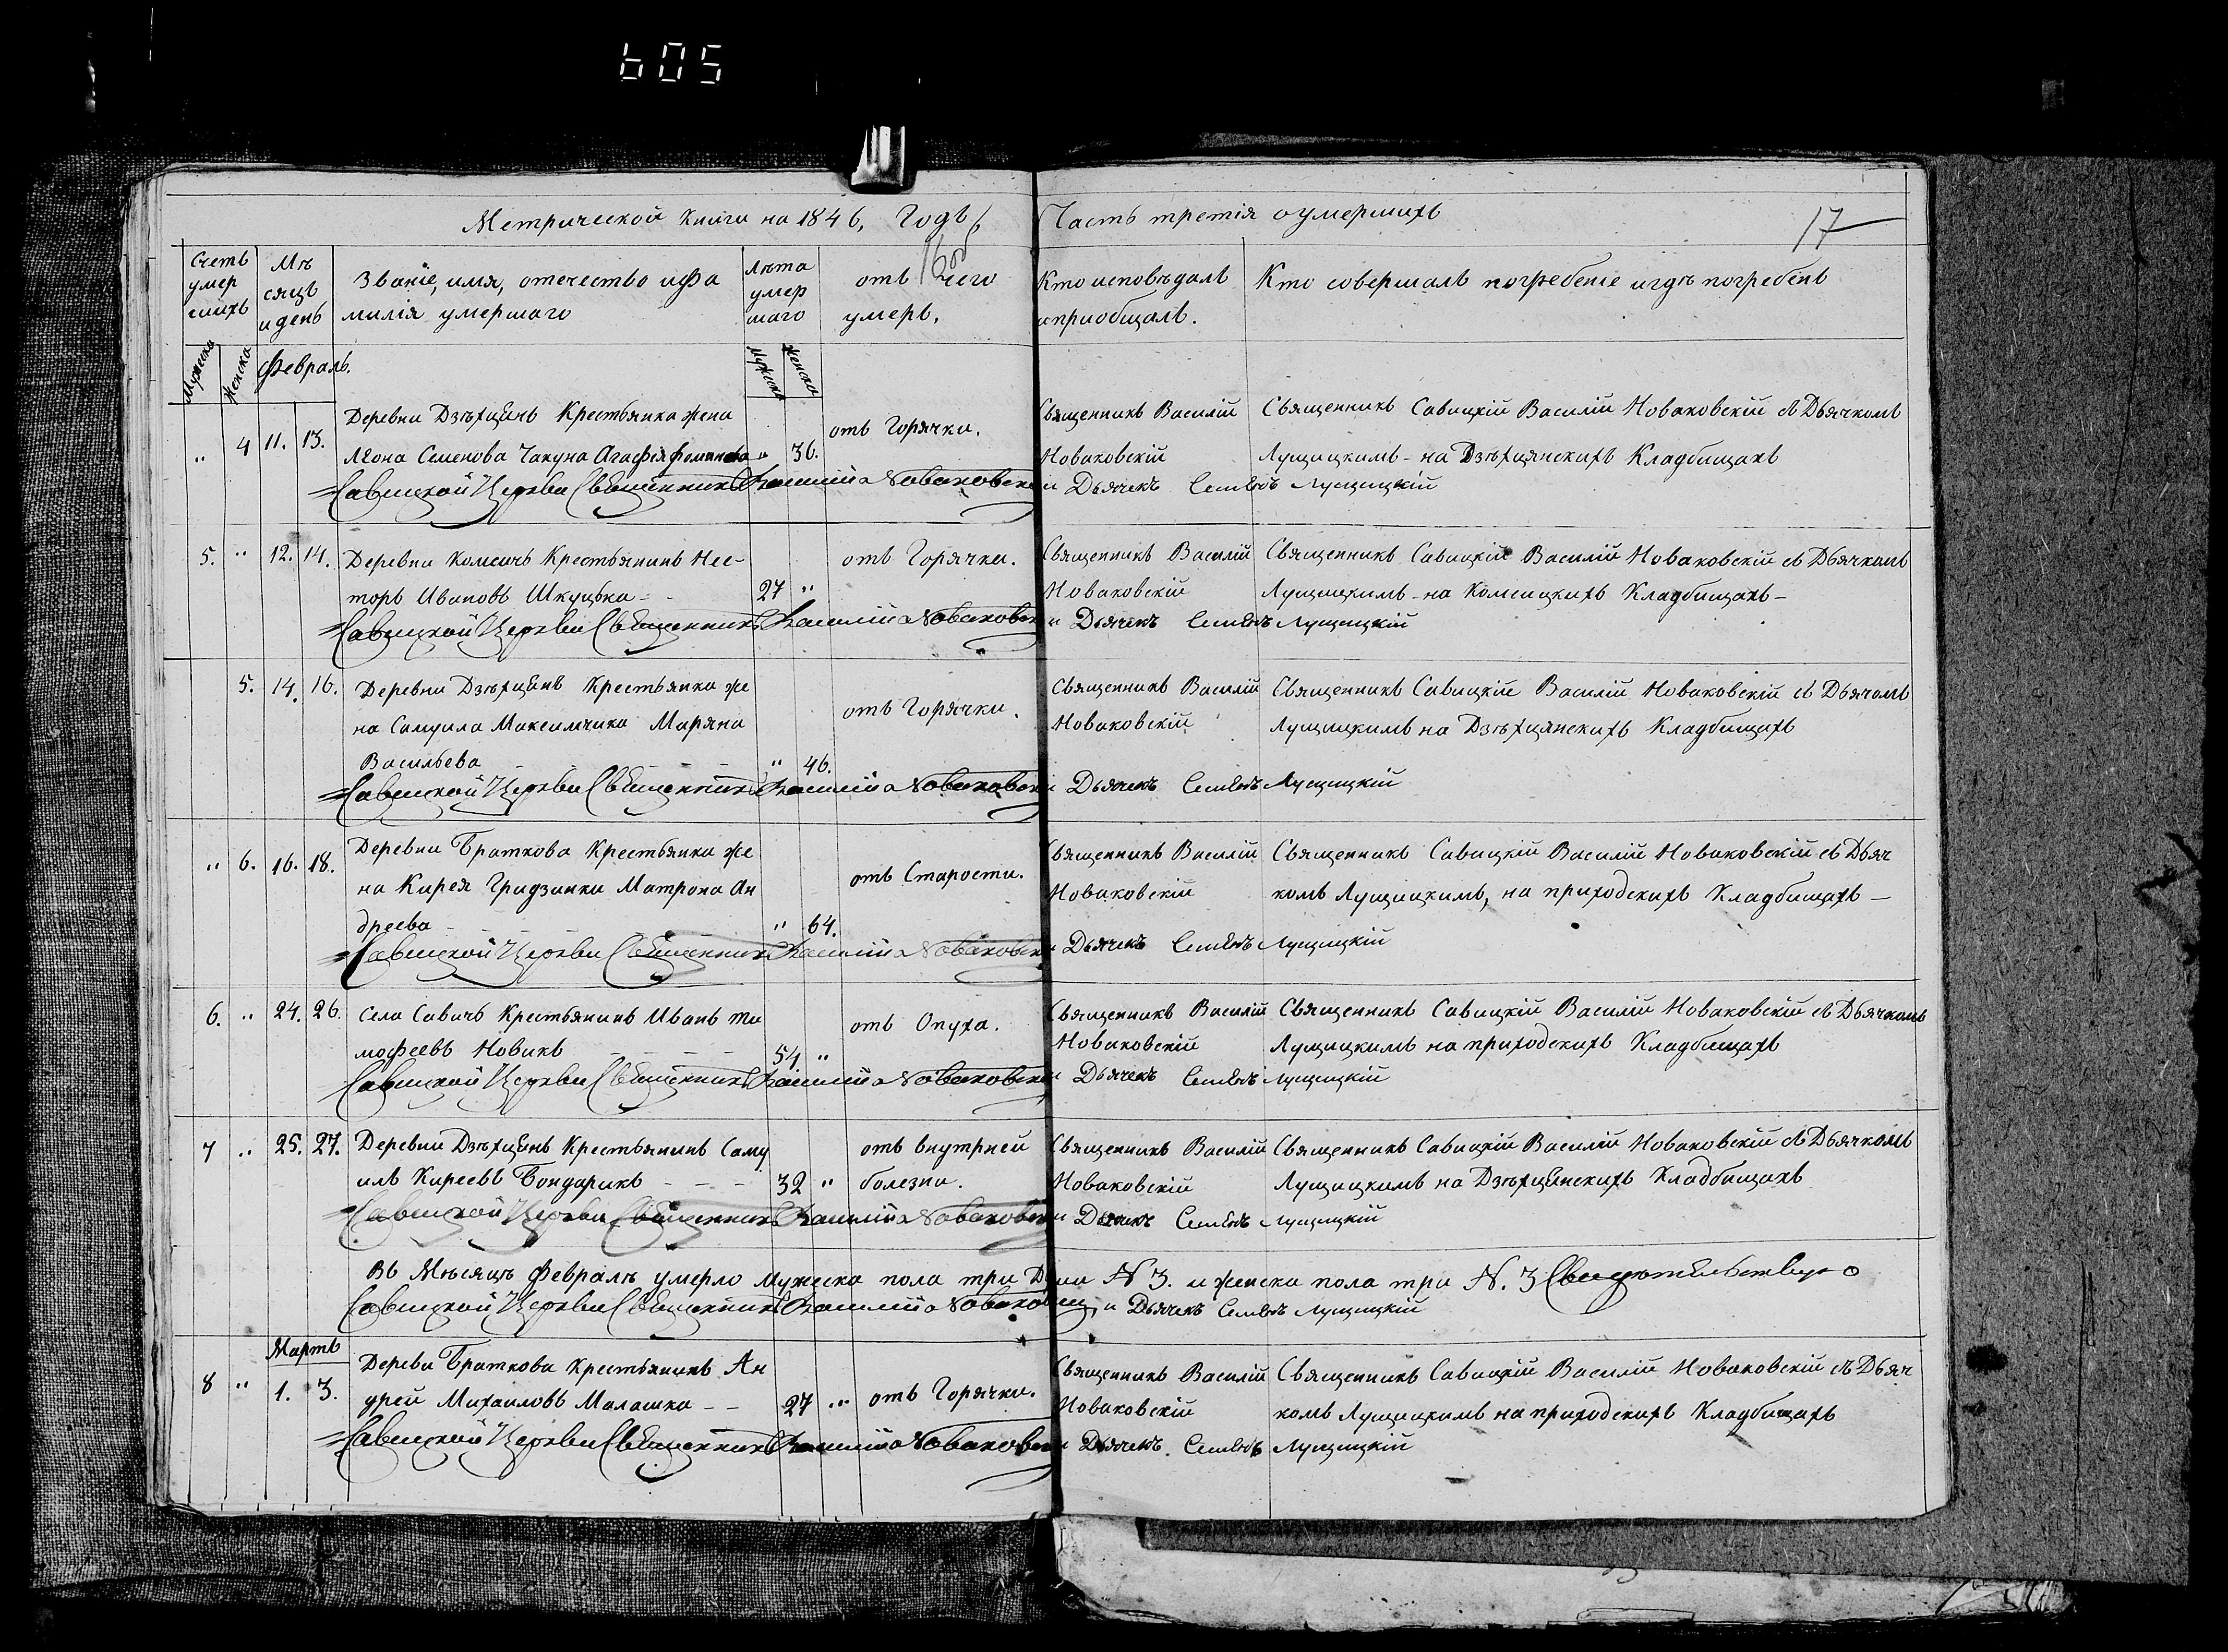 605
Метрической книги на 1846, Годъ Часть третія о умершихъ 17
Счетъ умершихъ
Мѣсяцъ и день
Званіе, имя, отечество ифамилія умершаго
Лѣта умершаго
отъ чего умеръ,
Кто исповѣдалъ и приобщалъ.
Кто совершалъ погребеніе игдѣ погребенъ
Мужеска Женска Февраль. Мужеска Женска
" 4 11. 13.
Деревни Дзѣхцѣнъ Крестьянка жена
Леона Семенова Чакуна Агафія " 36.
отъ Горячки.
Священникъ Василій
Новаковскій
Священникъ Савицкій Василій Новаковскій съ Дьячкомъ
Лущицкимъ - на Дзѣхцянскихъ Кладбищахъ
Савицкой Церкви Священникъ Василій Новаковскій и Дьячекъ Семенъ Лущицкій
5. " 12. 14.
Деревни Комсичъ Крестьянинъ Нес-
торъ Ивановъ Шкуцька - - 27 "
отъ Горячки.
Священникъ Василій
Новаковскій
Священникъ Савицкій Василій Новаковскій съ Дьячкомъ
Лущицкимъ - на Комсицкихъ Кладбищахъ -
Савицкой Церкви Священникъ Василій Новаковскій и Дьячекъ Семенъ Лущицкій
5. 14. 16.
Деревни Дзѣхцѣнъ Крестьянка же
на Самуила Максимчика Маряна
Васильева " 46.
отъ Горячки.
Священникъ Василій
Новаковскій
Священникъ Савицкій Василій Новаковскій съ Дьячомъ
Лущицкимъ на Дзѣхцянскихъ Кладбищахъ
Савицкой Церкви Священникъ Василій Новаковскій и Дьячекъ Семенъ Лущицкій
" 6. 16. 18.
Деревни Браткова Крестьянка же
на Кирея Гридзинки Матрона Ан
дреева " 64.
отъ Старости.
Священникъ Василій
Новаковскій
Священникъ Савицкій Василій Новаковскій съ Дьяч
комъ Лущицкимъ, на приходскихъ Кладбищахъ -
Савицкой Церкви Священникъ Василій Новаковскій Дьячекъ Семенъ Лущицкій
6. " 24. 26.
Села Савичъ Крестьянинъ Иванъ Ти
мофеевъ Новикъ 54 "
отъ Опуха.
Священникъ Василій
Новаковскій
Священникъ Савицкій Василій Новаковскій съ Дьячкомъ
Лущицкимъ на приходскихъ Кладбищахъ
Савицкой Церкви Священникъ Василій Новаковскій и Дьячекъ Семенъ Лущицкій
7 " 25. 27.
Деревни Дзѣхцѣнъ Крестьянинъ Саму
илъ Киреевъ Бондарикъ - - - 32 "
отъ внутрней
болезни.
Священникъ Василій
Новаковскій
Священникъ Савицкій Василій Новаковскій съ Дьячкомъ
Лущицкимъ на Дзѣхцѣнскихъ Кладбищахъ
Савицкой Церкви Священникъ Василій Новаковскій и Дьячекъ Семенъ Лущицкій
Въ Мѣсяцѣ Февралѣ умерло Мужеска пола три Души N 3. и женска пола три N. 3 Свидѣтельствую
Савицкой Церкви Священникъ Василій Новаковскій, и Дьячекъ Семенъ Лущицкій
Мартъ
8 " 1. 3.
Деревни Браткова Крестьянинъ Ан
дрей Михаиловъ Малашка - - 27 "
отъ Горячки.
Священникъ Василій
Новаковскій
Священникъ Савицкій Василій Новаковскій съ Дьяч
комъ Лущицкимъ на приходскихъ Кладбищахъ
Савицкой Церкви Священникъ Василій Новаковскій и Дьячекъ Семенъ Лущицкій